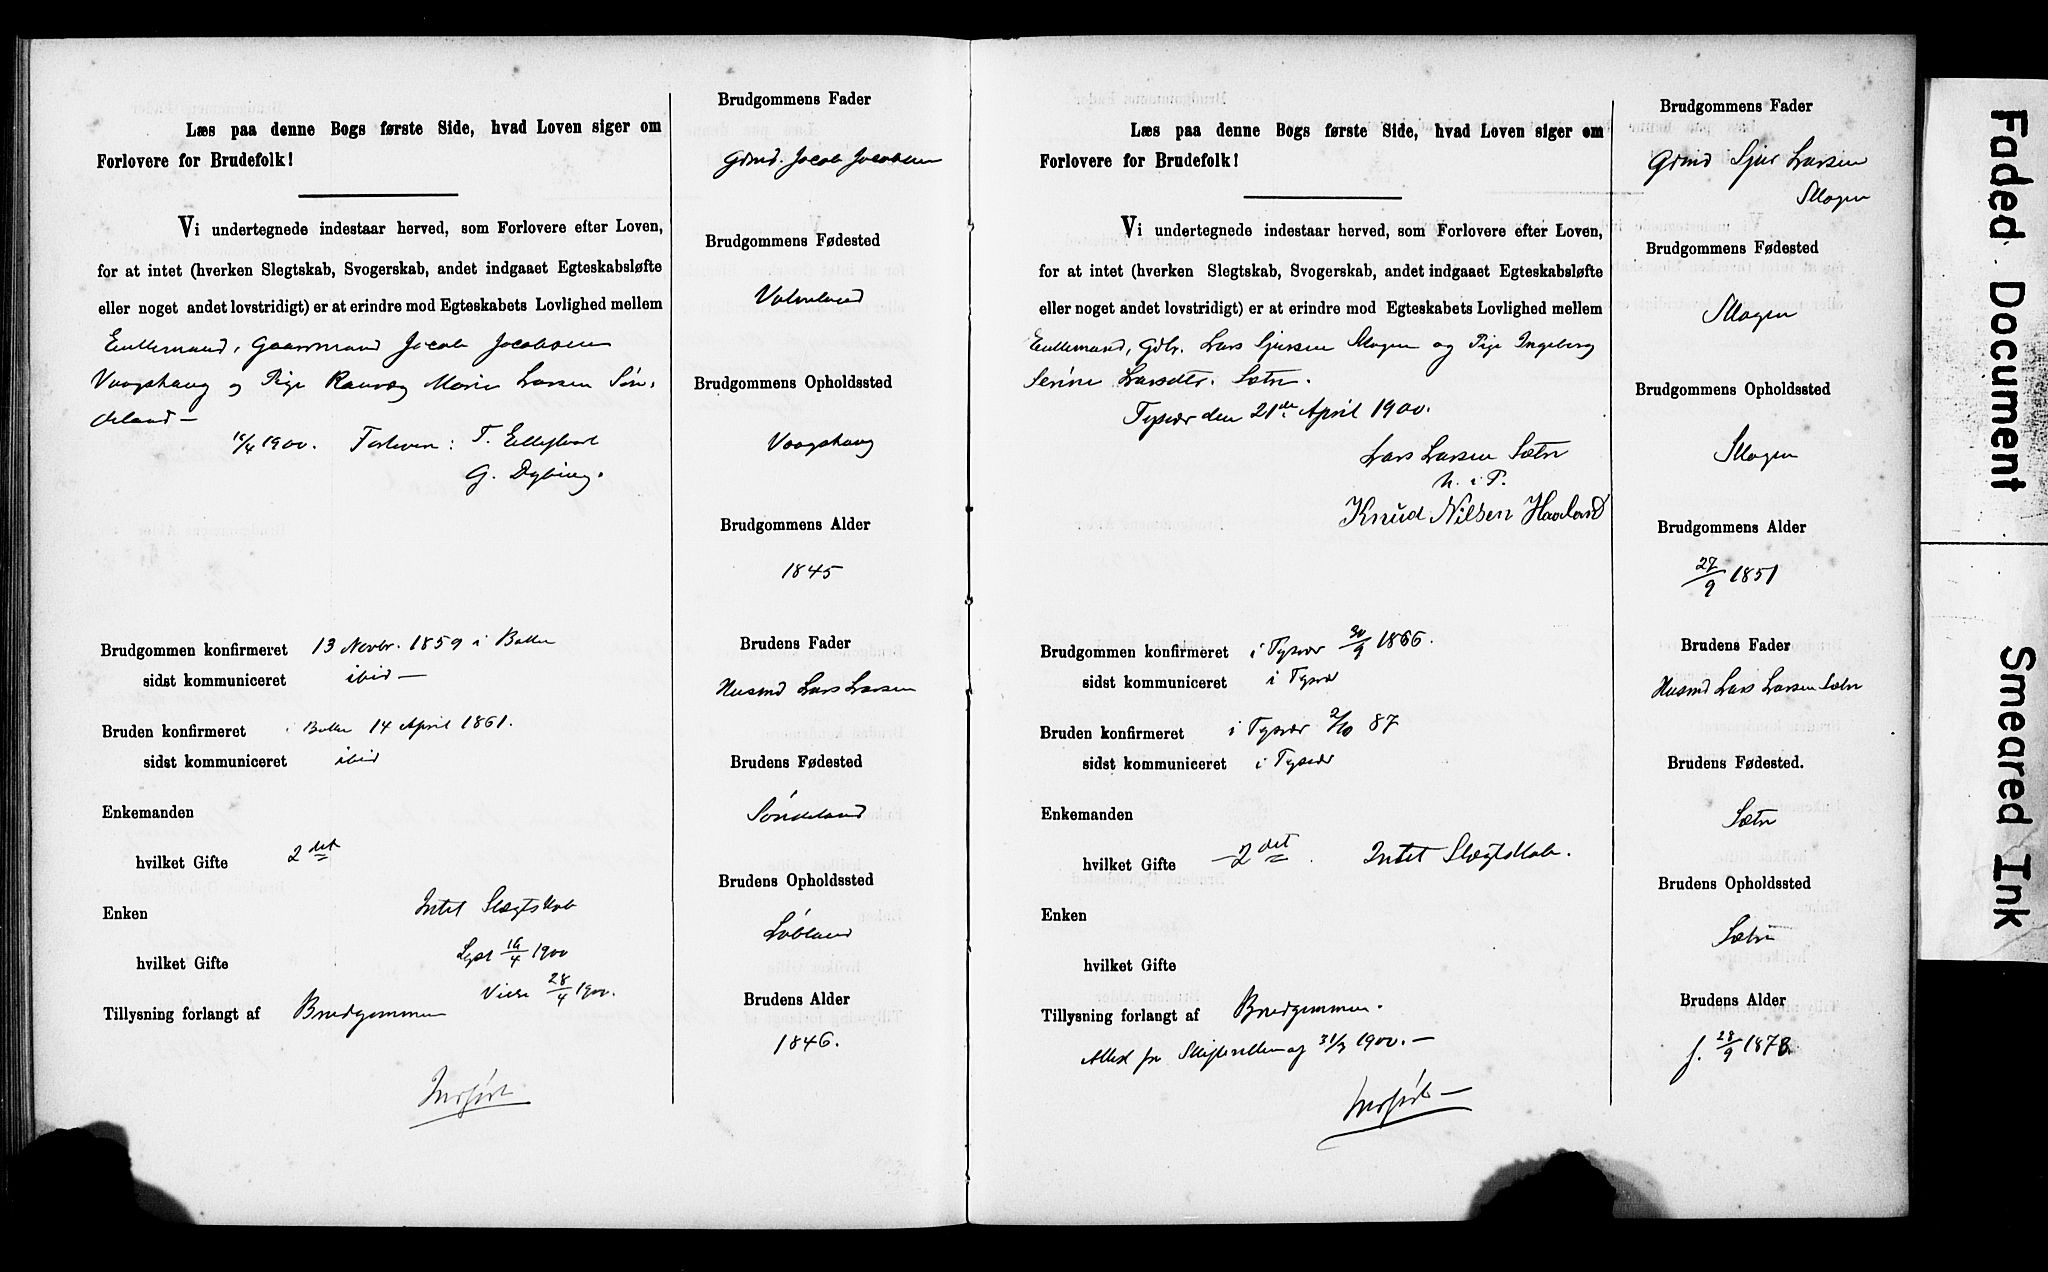 Læs paa denne Bogs første Side, hvad Loven siger om
Forlovere for Brudefolk!
Vi undertegnede indestaar herved, som Forlovere efter Loven,
for at intet (hverken Slegtskab, Svogerskab, andet indgaaet Egteskabsløfte
eller noget andet lovstridigt) er at erindre mod Egteskabets Lovlighed mellem
Enkemand, Gaardmand Jacob Jacobsen
Vaagshaug og Pige Ranvæg Marie Larsen Søn-
deland –
/4 1900. Forlovere: T. Eellefsen
G. Dybing.
Brudgommen konfirmeret 13 Novbr. 1859 i Bokn
sidst kommuniceret ibid –
Bruden konfirmeret i Bokn 14 April 1861.
sidst kommuniceret ibid
Enkemanden
hvilket Gifte 2det
Enken
Intet Slægtskab
hvilket Gifte
Lyst 16/4 1900
Viede 28/4 1900.
Tillysning forlangt af Brudgommen
Indført
Brudgommens Fader
Grmd. Jacob Jacobsen
Brudgommens Fødested
Brudgommens Opholdssted
Vaagshaug
Brudgommens Alder
1845
Brudens Fader
Husmd Lars Larsen
Brudens Fødested
Søndeland
Brudens Opholdssted
Løbland
Brudens Alder
1846.
Læs paa denne Bogs første Side, hvad Loven siger om
Forlovere for Brudefolk!
Vi undertegnede indestaar herved, som Forlovere efter Loven,
for at intet (hverken Slegtskab, Svogerskab, andet indgaaet Egteskabsløfte
eller noget andet lovstridigt) er at erindre mod Egteskabets Lovlighed mellem
Enkemand, Gdbr. Lars Sjursen Skogen og Pige Ingeborg
Serine Larsdtr. Sætre.
Tysvær den 21de April 1900.
Lars Larsen Sætre
m. i P.
Knud Nilsen Haaland
Brudgommen konfirmeret i Tysvær 30/9 1866.
sidst kommuniceret i Tysvær
Bruden konfirmeret i Tysvær 2/10 87
sidst kommuniceret i Tysvær
Enkemanden
hvilket Gifte 2det. Intet Slægtskab.
Enken
hvilket Gifte
Tillysning forlangt af Brudgommen.
Attest fra Skifteretten af 31/3 1900. –
Indført –
Brudgommens Fader
Grmd Sjur Larsen
Skogen
Brudgommens Fødested
Skogen
Brudgommens Opholdssted
Skogen
Brudgommens Alder
27/9 1851
Brudens Fader
Husmd Lars Larsen Sætre
Brudens Fødested.
Sætre
Brudens Opholdssted
Sætre
Brudens Alder
f. 28/9 1873.
Faded Document
Smeared Ink